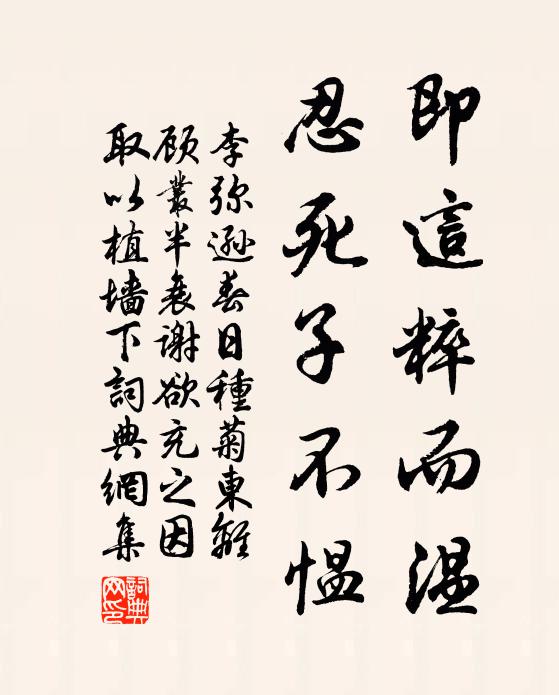 即這粹而温
忍死子不愠
李弥遜春日種菊東離
顾叢半衰謝欲充之因
取以植墙下詞典網集
詞典
网印